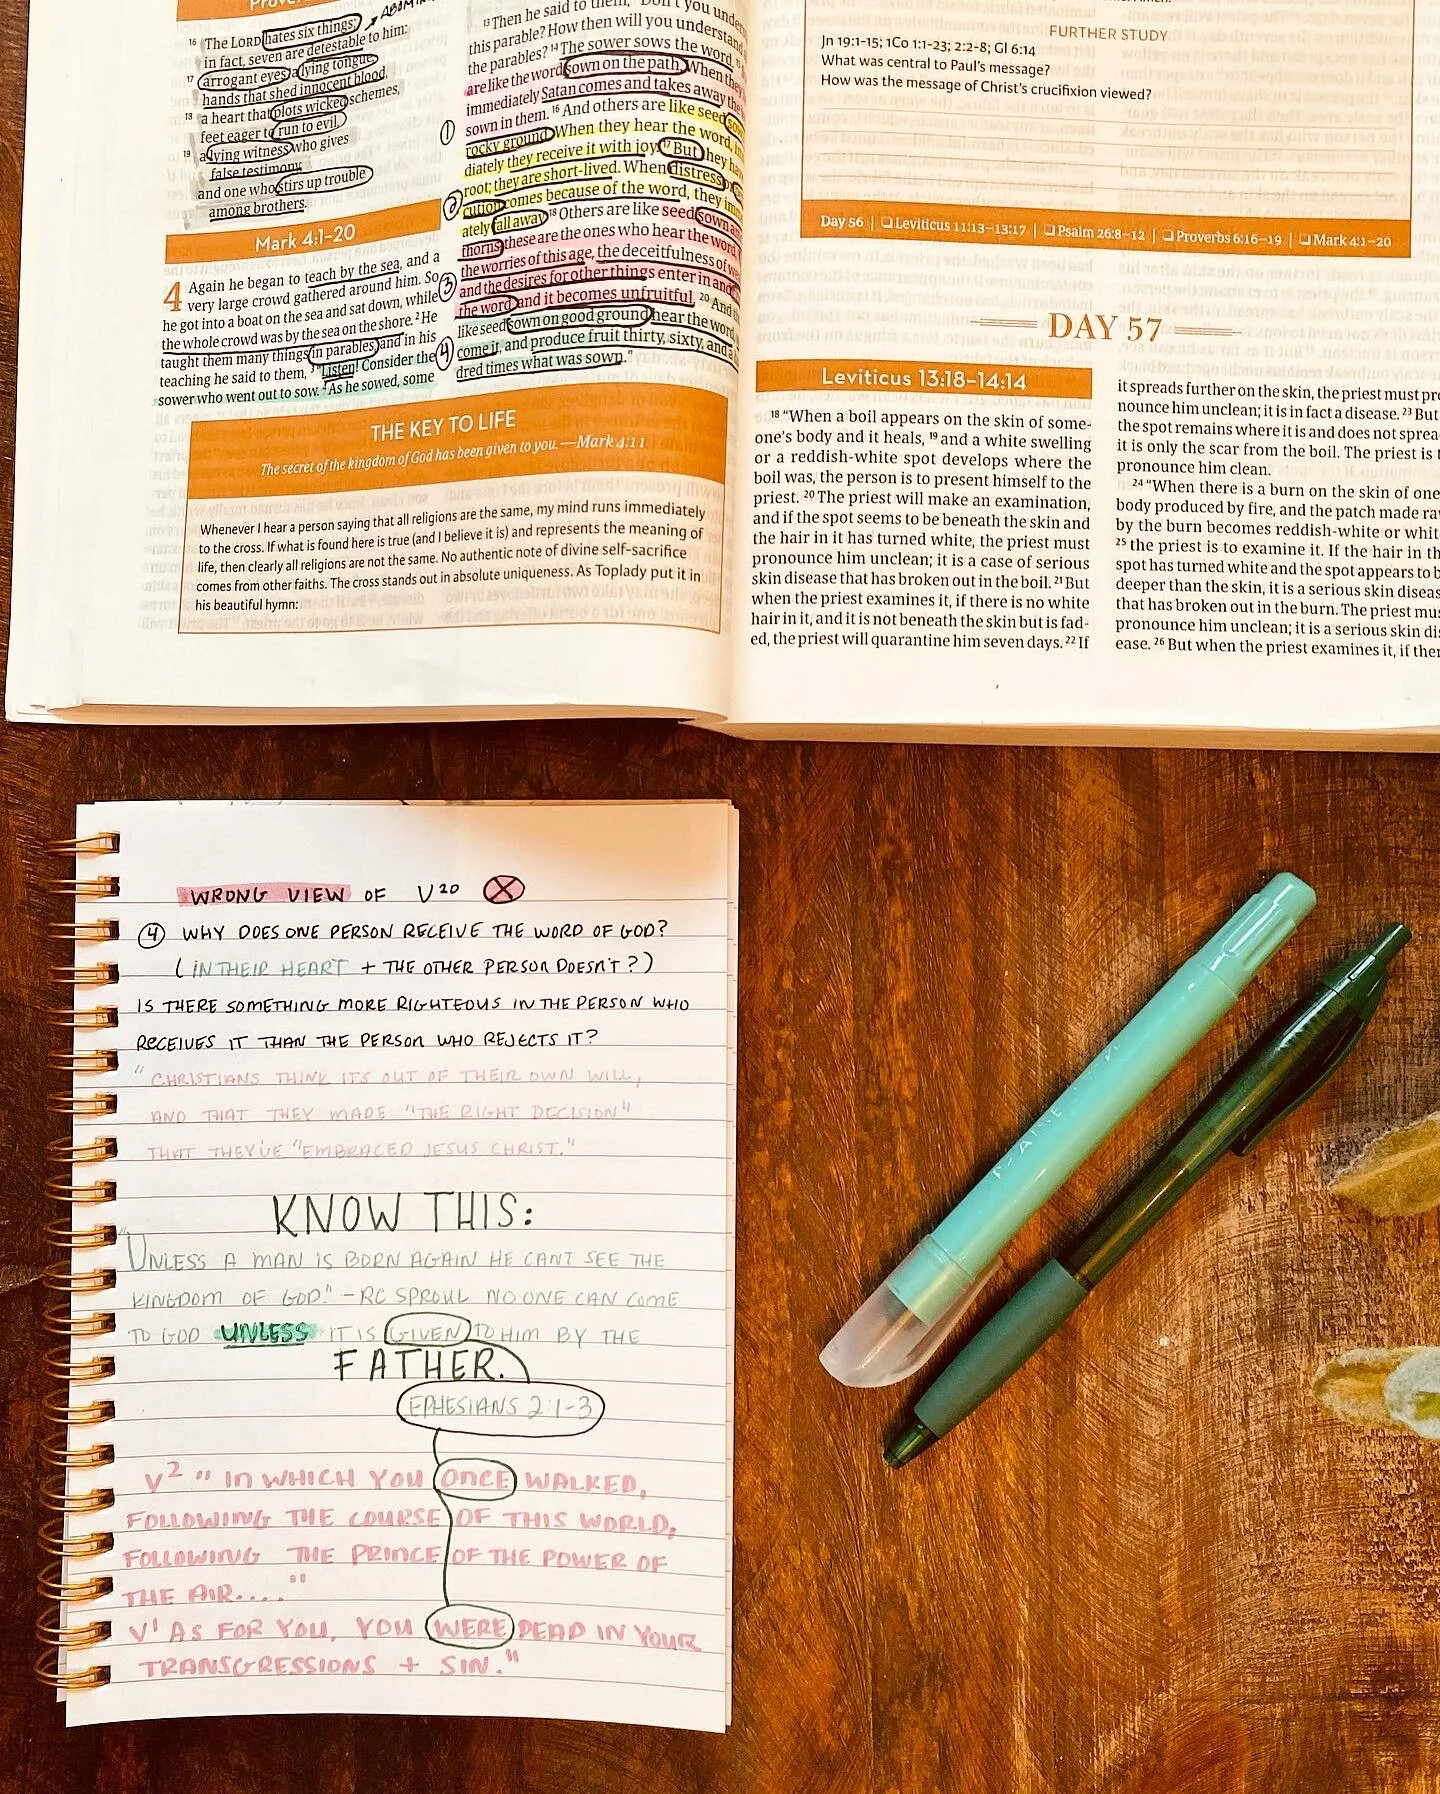 Prover
¹⁶ The LORD hates six things;
in fact, seven are detestable to him:
¹⁷ arrogant eyes, a lying tongue,
hands that shed innocent blood,
¹⁸ a heart that plots wicked schemes,
feet eager to run to evil,
¹⁹ a lying witness who gives
false testimony,
and one who stirs up trouble
among brothers.
Mark 4:1–20
4 Again he began to teach by the sea, and a
very large crowd gathered around him. So
he got into a boat on the sea and sat down, while
the whole crowd was by the sea on the shore. ² He
taught them many things in parables, and in his
teaching he said to them, ³ "Listen! Consider the
sower who went out to sow. ⁴ As he sowed, some
¹³ Then he said to them, "Don't you under
this parable? How then will you understand
the parables? ¹⁴ The sower sows the word.
are like the word sown on the path. When they
immediately Satan comes and takes away the
sown in them. ¹⁶ And others are like seed
① rocky ground. When they hear the word,
diately they receive it with joy. ¹⁷ But they
root; they are short-lived. When distress
② cution comes because of the word, they
ately fall away. ¹⁸ Others are like seed sown
thorns; these are the ones who hear the word,
the worries of this age, the deceitfulness of
③ and the desires for other things enter in and
the word, and it becomes unfruitful. ²⁰ And
like seed sown on good ground hear the word,
④ come it, and produce fruit thirty, sixty, and
dred times what was sown."
THE KEY TO LIFE
The secret of the kingdom of God has been given to you. —Mark 4:11
Whenever I hear a person saying that all religions are the same, my mind runs immediately
to the cross. If what is found here is true (and I believe it is) and represents the meaning of
life, then clearly all religions are not the same. No authentic note of divine self-sacrifice
comes from other faiths. The cross stands out in absolute uniqueness. As Toplady put it in
his beautiful hymn:
FURTHER STUDY
Jn 19:1-15; 1Co 1:1-23; 2:2-8; Gl 6:14
What was central to Paul's message?
How was the message of Christ's crucifixion viewed?
Day 56 | ❑ Leviticus 11:13–13:17 | ❑ Psalm 26:8–12 | ❑ Proverbs 6:16–19 | ❑ Mark 4:1–20
DAY 57
Leviticus 13:18–14:14
¹⁸ "When a boil appears on the skin of some-
one's body and it heals, ¹⁹ and a white swelling
or a reddish-white spot develops where the
boil was, the person is to present himself to the
priest. ²⁰ The priest will make an examination,
and if the spot seems to be beneath the skin and
the hair in it has turned white, the priest must
pronounce him unclean; it is a case of serious
skin disease that has broken out in the boil. ²¹ But
when the priest examines it, if there is no white
hair in it, and it is not beneath the skin but is fad-
ed, the priest will quarantine him seven days. ²² If
it spreads further on the skin, the priest must pro
nounce him unclean; it is in fact a disease. ²³ But
the spot remains where it is and does not sprea
it is only the scar from the boil. The priest is t
pronounce him clean.
²⁴ "When there is a burn on the skin of one
body produced by fire, and the patch made ra
by the burn becomes reddish-white or whit
²⁵ the priest is to examine it. If the hair in th
spot has turned white and the spot appears to b
deeper than the skin, it is a serious skin diseas
that has broken out in the burn. The priest mus
pronounce him unclean; it is a serious skin dis
ease. ²⁶ But when the priest examines it, if ther
WRONG VIEW OF V20 ⓧ
④ WHY DOES ONE PERSON RECEIVE THE WORD OF GOD?
(IN THEIR HEART + THE OTHER PERSON DOESN'T?)
IS THERE SOMETHING MORE RIGHTEOUS IN THE PERSON WHO
RECEIVES IT THAN THE PERSON WHO REJECTS IT?
"CHRISTIANS THINK ITS OUT OF THEIR OWN WILL,
AND THAT THEY MADE "THE RIGHT DECISION"
THAT THEY'VE "EMBRACED JESUS CHRIST."
KNOW THIS:
"UNLESS A MAN IS BORN AGAIN HE CANT SEE THE
KINGDOM OF GOD." -RC SPROUL NO ONE CAN COME
TO GOD UNLESS IT IS GIVEN TO HIM BY THE
FATHER.
EPHESIANS 2:1-3
V2 "IN WHICH YOU ONCE WALKED,
FOLLOWING THE COURSE OF THIS WORLD,
FOLLOWING THE PRINCE OF THE POWER OF
THE AIR...."
V1 AS FOR YOU, YOU WERE DEAD IN YOUR
TRANSGRESSIONS + SIN."